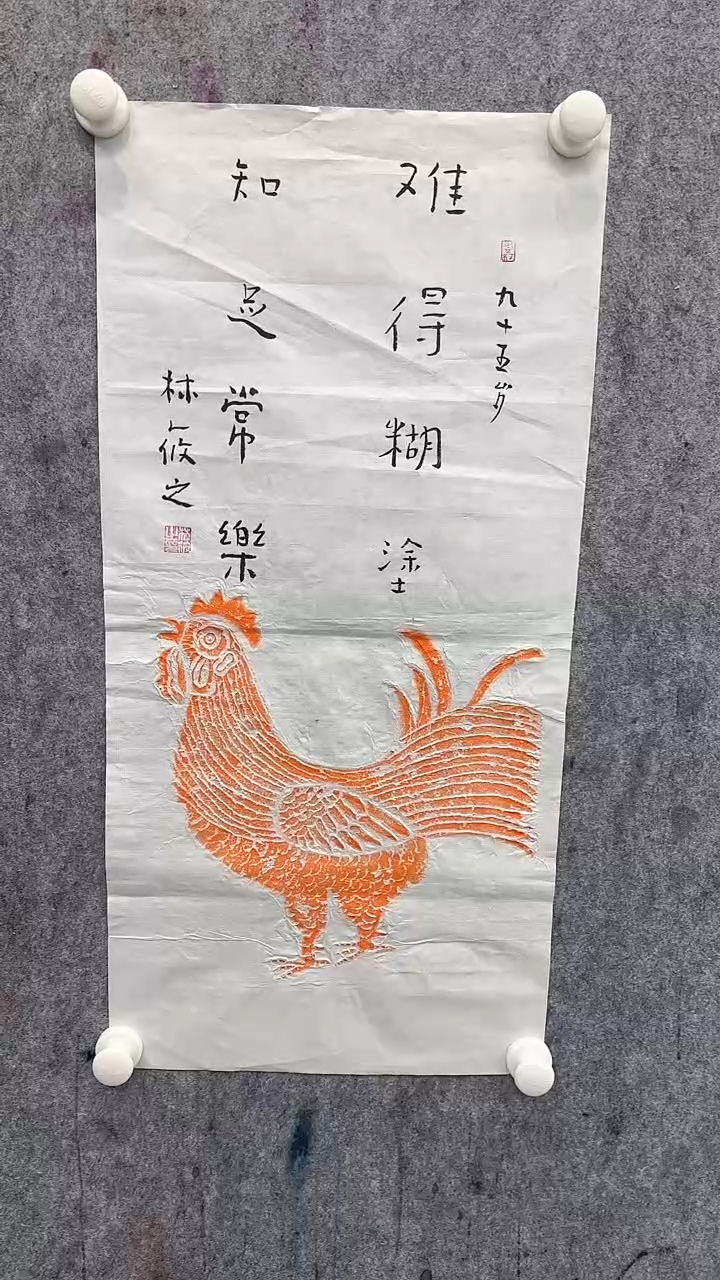 九十五岁
难得糊涂
知足常樂
林筱之